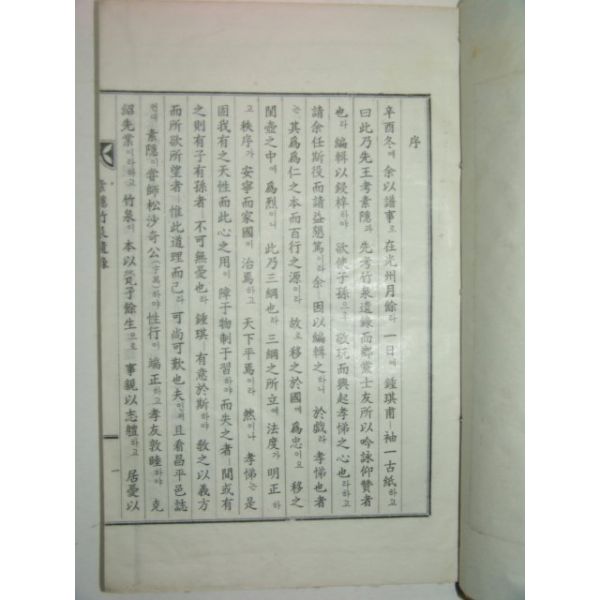 序
辛酉冬에 余以譜事로 在光州月餘라 一日에 鍾琪甫ㅣ 袖一古紙하고
曰此乃先王考素隱과 先考竹泉遺錄而鄕黨士友所以吟詠仰贊者
也라 編輯以鋟梓하야 欲使子孫으로 敬玩而興起孝悌之心也라하고
請余任斯役而請益懇篤이라 余 因以編輯之하니 於戱라 孝悌也者
는 其爲爲仁之本而百行之源이라 故로 移之於國에 爲忠이요 移之
閨壺之中에 爲烈이니 此乃三綱也라 三綱之所立에 法度가 明正하
고 秩序가 安寧而家國이 治焉하고 天下平焉이라 然이나 孝悌는 是
固我有之天性而此心之用이 障于物制于習하야 而失之者ㅣ 間或有
之則有子有孫者ㅣ 不可無憂也라 鍾琪ㅣ 有意於斯하야 敎之以義方
而所欲所望者ㅣ 惟此道理而已라 可尚可歎也夫인저 且看昌平邑誌
컨대 素隱이 嘗師松沙奇公(宇萬)하야 性行이 端正하고 孝友敦睦하야 克
紹先業이라하고 竹泉이 本以 子餘生으로 事親以志軆하고 居憂以
素隱竹泉遺錄
一